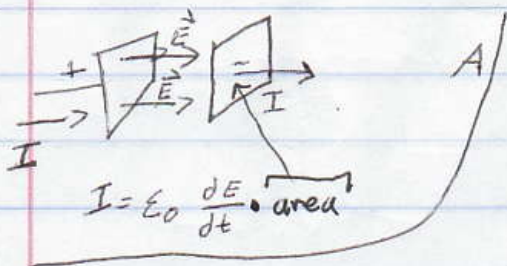 E⃗
+ E⃗ - I A
I
I = ε₀ dE/dt • area